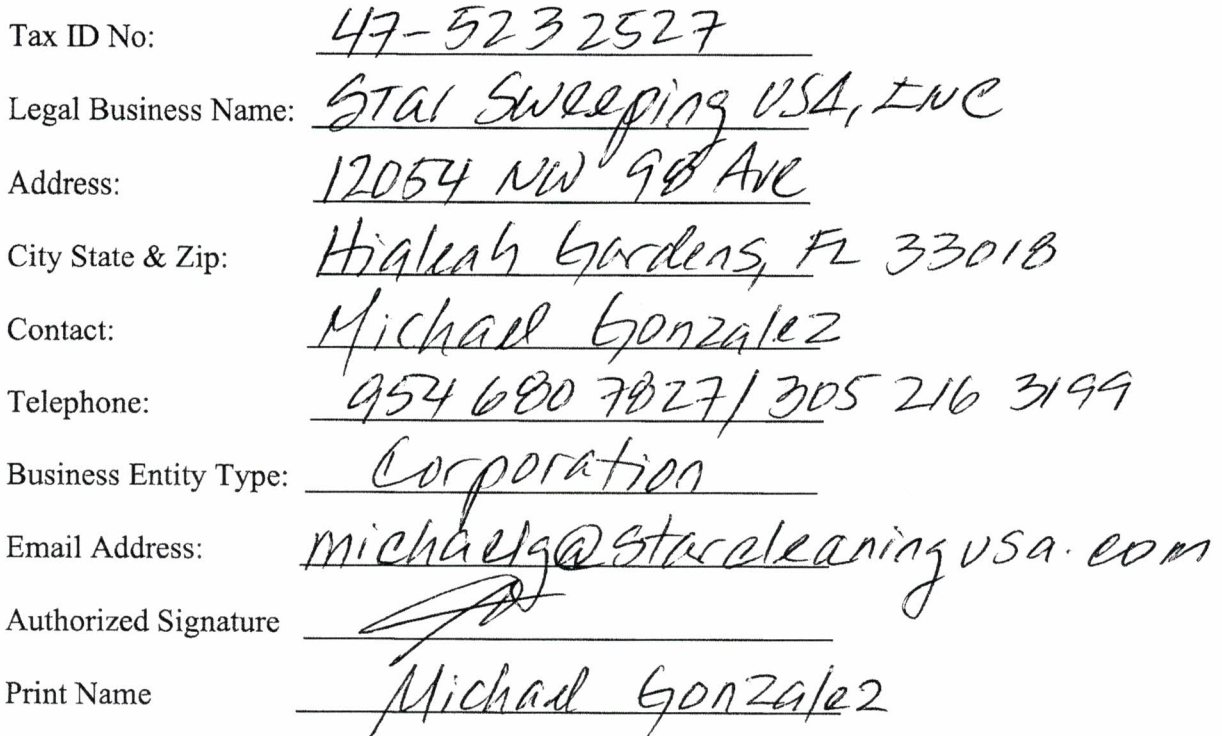 Tax ID No: 47-5232527
Legal Business Name: Star Sweeping USA, INC
Address: 12054 NW 98 Ave
City State & Zip: Hialeah Gardens, FL 33018
Contact: Michael Gonzalez
Telephone: 954 680 7827/305 216 3199
Business Entity Type: Corporation
Email Address: michaelg@starcleaningusa.com
Authorized Signature
Print Name Michael Gonzalez